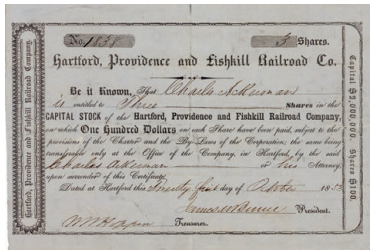 No. 1838 3 Shares.
Hartford, Providence and Fishkill Railroad Co.
Be it Known, That Charles Ackerman
is entitled to Three Shares in the
CAPITAL STOCK of the Hartford, Providence and Fishkill Railroad Company,
on which One Hundred Dollars on each Share have been paid, subject to the
provisions of the Charter and the By-Laws of the Corporation; the same being
transferable only at the Office of the Company, in Hartford, by the said
Charles Ackerman or his Attorney,
upon surrender of this Certificate.
Dated at Hartford this Twenty first day of October 1853
President.
Treasurer.
Hartford, Providence and Fishkill Railroad Company.
Capital $2,000,000 Shares $100